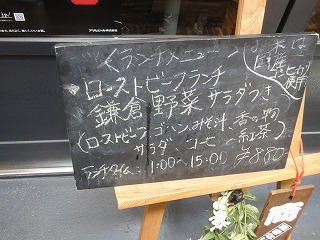 〈ランチメニュー〉
米は
国産ヒカリ
使用
ローストビーフランチ
鎌倉野菜サラダつき
(ローストビーフ、ゴハン、みそ汁、香の物
サラダ、コーヒー、紅茶)
ランチタイム:
1:00〜15:00 ¥880